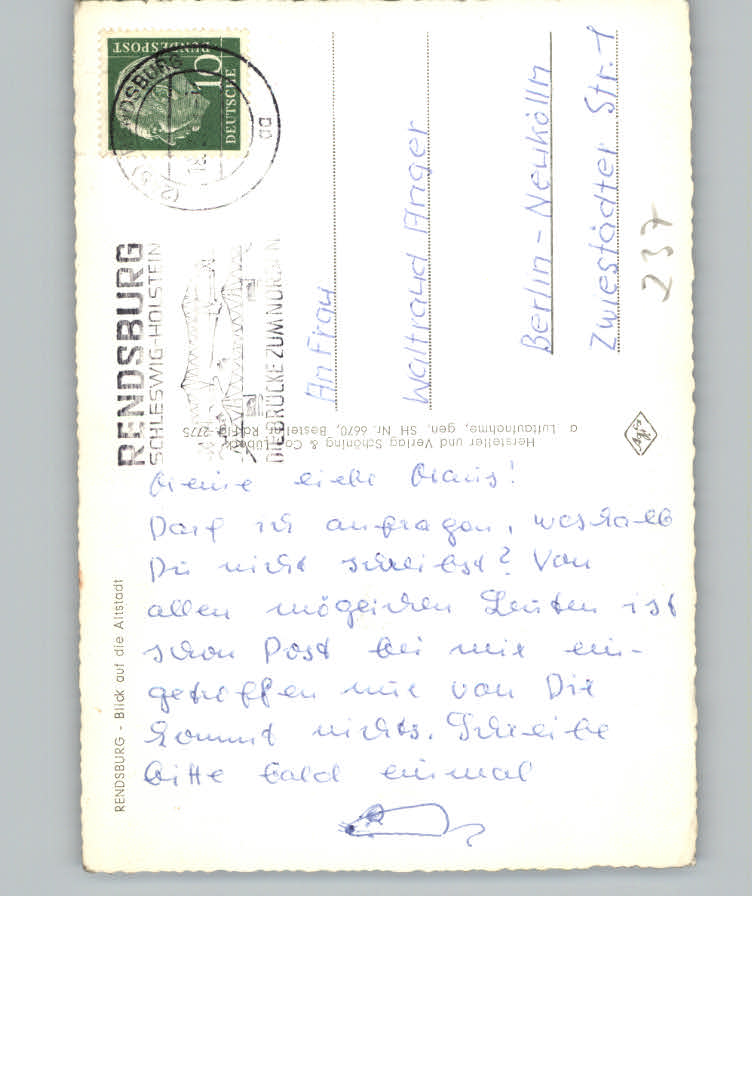 Meine liebe Maus!
Darf ich anfragen, weshalb
Du nicht schreibst? Von
allen möglichen Leuten ist
schon Post bei mir ein-
getroffen nur von Dir
kommt nichts. Schreibe
bitte bald einmal
An Frau
Waltraud Anger
Berlin - Neukölln
Zwiestädter Str. 1
237
RENDSBURG
SCHLESWIG-HOLSTEIN
DIE BRÜCKE ZUM NORDEN
DEUTSCHE
BUNDESPOST
10
RENDSBURG
aa
Hersteller und Verlag Schöning & Co., Lübeck
a Luftaufnahme, gen. SH Nr. 6670, Bestell-Nr.
2775
RENDSBURG - Blick auf die Altstadt